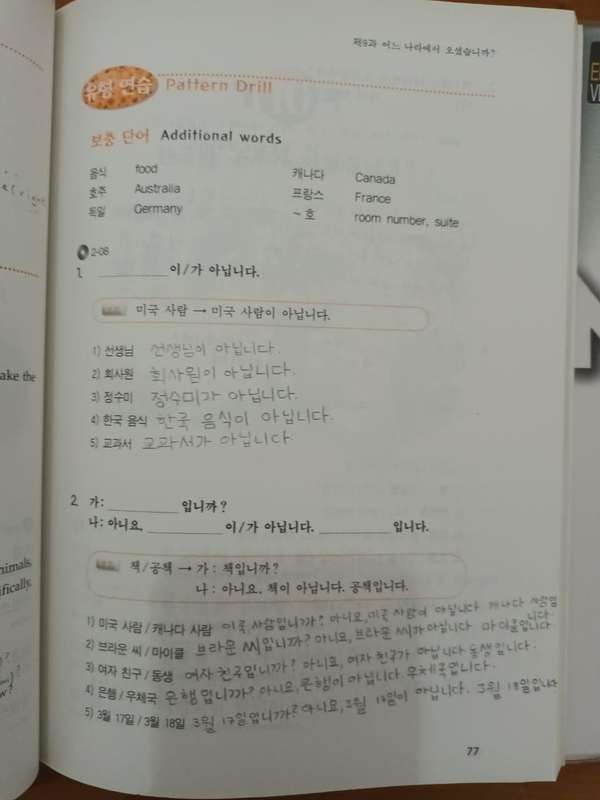 제9과 어느 나라에서 오셨습니까?
유형 연습 Pattern Drill
보충 단어 Additional words
음식 food 캐나다 Canada
호주 Australia 프랑스 France
독일 Germany ~호 room number, suite
2-08
1. 이/가 아닙니다.
미국 사람 → 미국 사람이 아닙니다.
1) 선생님 선생님이 아닙니다.
2) 회사원 회사원이 아닙니다.
3) 정수미 정수미가 아닙니다.
4) 한국 음식 한국 음식이 아닙니다.
5) 교과서 교과서가 아닙니다
2. 가: 입니까?
나: 아니요, 이/가 아닙니다. 입니다.
책/공책 → 가: 책입니까?
나: 아니요. 책이 아닙니다. 공책입니다.
1) 미국 사람 / 캐나다 사람 미국 사람입니까? 아니요, 미국 사람이 아닙니다 캐나다 사람입니다.
2) 브라운 씨 / 마이클 브라운 씨입니까? 아니요, 브라운 씨가 아닙니다 마이클입니다
3) 여자 친구 / 동생 여자 친구입니까? 아니요, 여자 친구가 아닙니다 동생입니다.
4) 은행 / 우체국 은행입니까? 아니요, 은행이 아닙니다. 우체국입니다.
5) 3월 17일 / 3월 18일 3월 17일입니까? 아니요, 3월 17일이 아닙니다. 3월 18일입니다
77
ake the
nimals.
ifically.